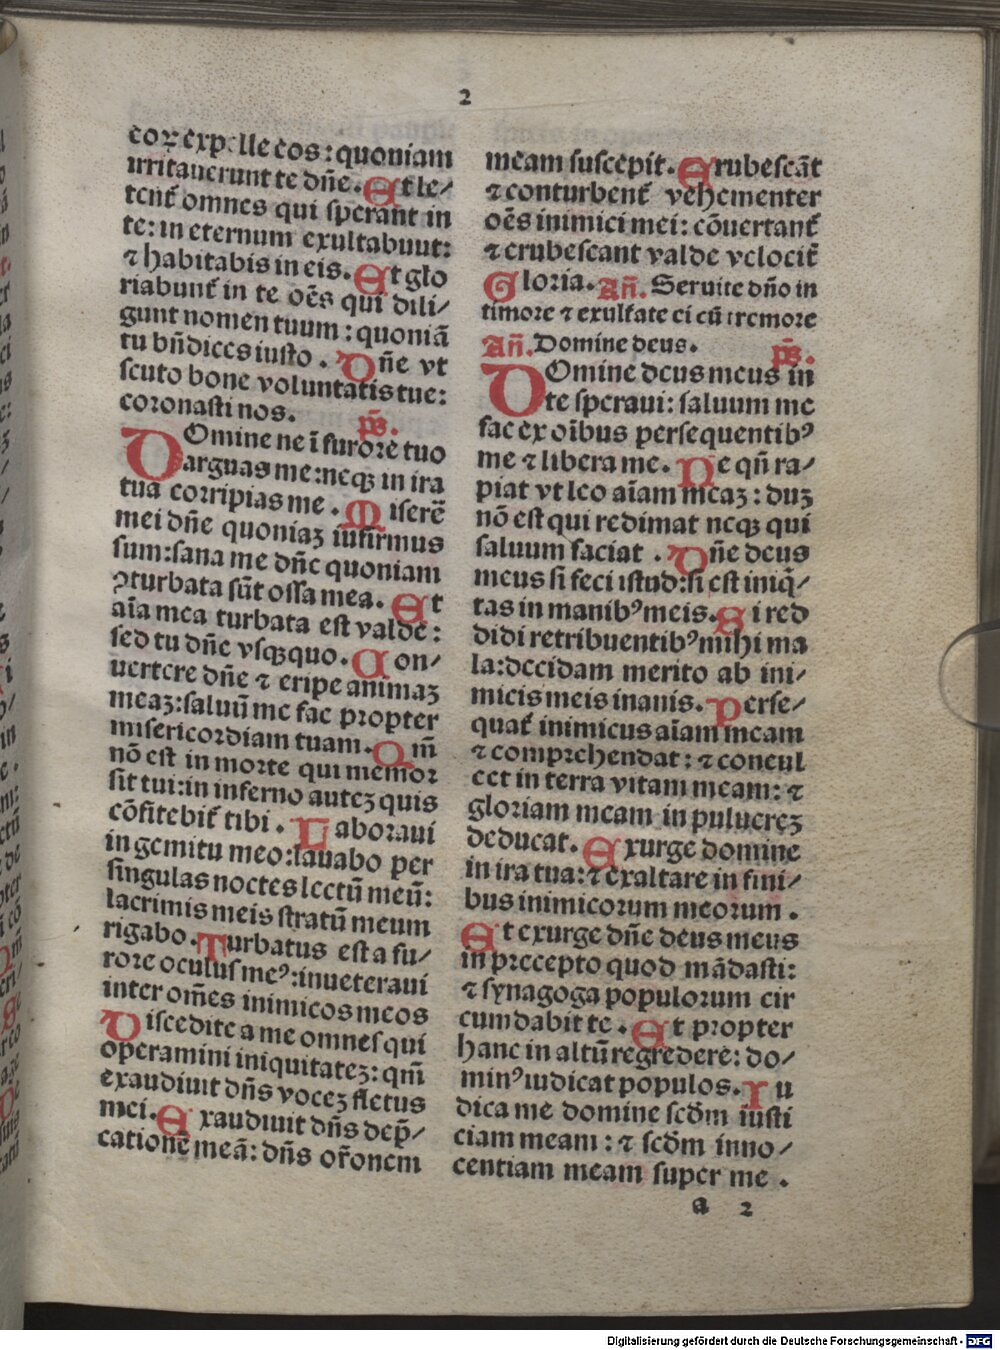 2
eoꝝ expelle eos: quoniam
irritauerunt te dñe. Et le⸗
tent᷑ omnes qui sperant in
te: in eternum exultabunt:
⁊ habitabis in eis. Et glo
riabunt᷑ in te oẽs qui dili⸗
gunt nomen tuum: quoniã
tu bñdices iusto. Dñe vt
scuto bone voluntatis tue:
coronasti nos. p̃s.
DOmine ne ĩ furore tuo
arguas me: neqꝫ in ira
tua corripias me. Miserẽ
mei dñe quoniaꝫ infirmus
sum: sana me dñe quoniam
ꝯturbata sũt ossa mea. Et
aĩa mea turbata est valde:
sed tu dñe vsqꝫquo. Con⸗
uertere dñe ⁊ eripe animaꝫ
meaꝫ: saluũ me fac propter
misericordiam tuam. Qm̃
nõ est in morte qui memor
sit tui: in inferno auteꝫ quis
cõfitebit᷑ tibi. Laboraui
in gemitu meo: lauabo per
singulas noctes lectũ meũ:
lacrimis meis stratũ meum
rigabo. Turbatus est a fu⸗
rore oculus meꝰ: inueteraui
inter om̃es inimicos meos
Discedite a me omnes qui
operamini iniquitateꝫ: qm̃
exaudiuit dñs voceꝫ fletus
mei. Exaudiuit dñs dep̃⸗
cationẽ meã: dñs or̃onem
meam suscepit. Erubescãt
⁊ conturbent᷑ vehementer
oẽs inimici mei: cõuertant᷑
⁊ erubescant valde velocit᷑
Gloria. Añ. Seruite dño in
timore ⁊ exultate ei cũ tremore
Añ. Domine deus. p̃s.
DOmine deus meus in
te speraui: saluum me
fac ex oĩbus persequentibꝰ
me ⁊ libera me. Ne qñ ra⸗
piat vt leo aĩam meaꝫ: duꝫ
nõ est qui redimat neqꝫ qui
saluum faciat. Dñe deus
meus si feci istud: si est iniq̃⸗
tas in manibꝰ meis. Si red
didi retribuentibꝰ mihi ma
la: decidam merito ab ini⸗
micis meis inanis. Perse⸗
quat᷑ inimicus aĩam meam
⁊ comprehendat: ⁊ concul
cet in terra vitam meam: ⁊
gloriam meam in puluereꝫ
deducat. Exurge domine
in ira tua: ⁊ exaltare in fini⸗
bus inimicorum meorum.
Et exurge dñe deus meus
in precepto quod mãdasti:
⁊ synagoga populorum cir
cumdabit te. Et propter
hanc in altũ regredere: do⸗
minꝰ iudicat populos. Iu
dica me domine scdm iusti
ciam meam: ⁊ scdm inno⸗
centiam meam super me.
a 2
Digitalisierung gefördert durch die Deutsche Forschungsgemeinschaft - DFG